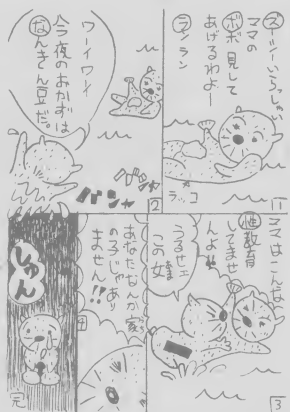 スーシーいらっしゃい
ママの
ボボ見して
あげるわよー
ランラン
ラッコ
1
ワーイワーイ
今夜のおかずは
なんきん豆だ。
バシャ
バシャ
2
ママはこんな
性教育
してませ
んよ!!
うるせェ
この女
3
あなたなんか
家
の子じゃあり
ません!!
しゅん
完